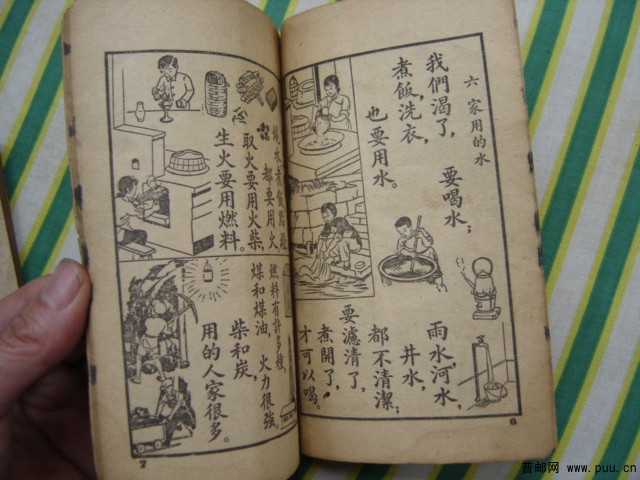 六 家用的水
我們渴了，
要喝水；
煮飯洗衣，
也要用水。
雨水河水，
井水，
都不清潔；
要濾清了，
煮開了，
才可以喝。
6
燒水煮飯點燈
都要用火
取火要用火柴，
生火要用燃料。
燃料有許多種，
煤和煤油，火力很強。
柴和炭，
用的人家很多。
7
普邮网 www.puu.cn